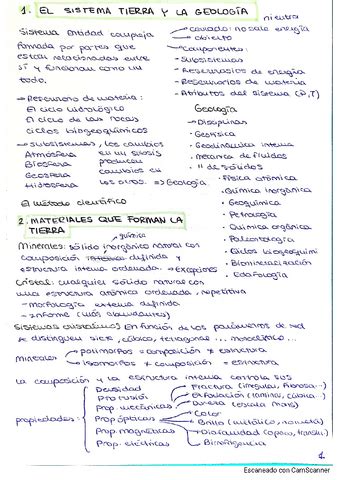 1. EL SISTEMA TIERRA Y LA GEOLOGÍA
Sistema Entidad compleja
formada por partes que
están relacionadas entre
sí y funcionan como un
todo.
cerrado: no sale energía
abierto
Componentes:
- Subsistemas
- Reservorios de energía
- Reservorios de materia
- Atributos del sistema (P,T)
Reservorio de materia:
El ciclo hidrológico
El ciclo de las rocas
Ciclos biogeoquímicos
Subsistemas, los cambios
Atmósfera en un
Biosfera producen
Geosfera cambios en
Hidrosfera los otros. → Geología
Geología
- Disciplinas
- Geofísica
- Geodinámica interna
- Mecánica de fluidos
" de sólidos
- Física atómica
- Química inorgánica
- Geoquímica
- Petrología
- Química orgánica
- Paleontología
- Ciclos biogeoquím
- Biomineralización
- Edafología
El método científico
2. MATERIALES QUE FORMAN LA
TIERRA
química
Minerales: sólido inorgánico natural con
composición definida y
estructura interna ordenada. → Excepciones
Cristal: cualquier sólido natural con
una estructura atómica ordenada, repetitiva
- Morfología externa definida
- Informe (más abundantes)
Sistemas cristalinos: En función de los parámetros de red
se distinguen siete, cúbico, tetragonal ... monoclínico...
Minerales polimorfos = composición ≠ estructura
isomorfos ≠ composición = estructura
La composición y la estructura interna controla sus
propiedades:
Densidad
Prop. mecánicas
Prop. ópticas
Prop. magnéticas
Prop. eléctricas
Fractura (irregular, fibrosa...)
Exfoliación (laminar, cúbica...)
Dureza (escala mohs)
Color
Brillo (metálico, no metá)
Diafanidad (opaco, transl..)
Birrefringencia
1.
Escaneado con CamScanner